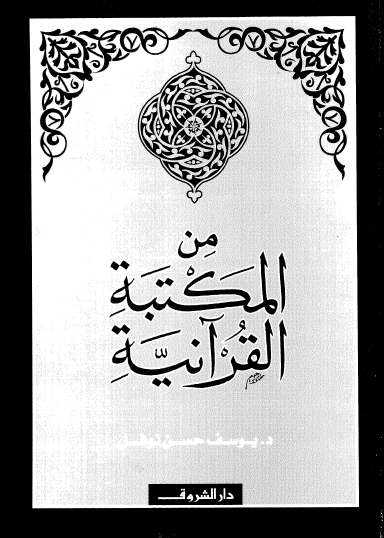 مِن
المَكْتَبَةِ
القُرْآنِيَّةِ
د. يوسف حسن نوفل
دار الشروق